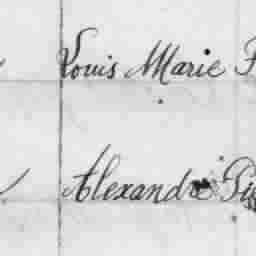 Louis Marie
Alexandre